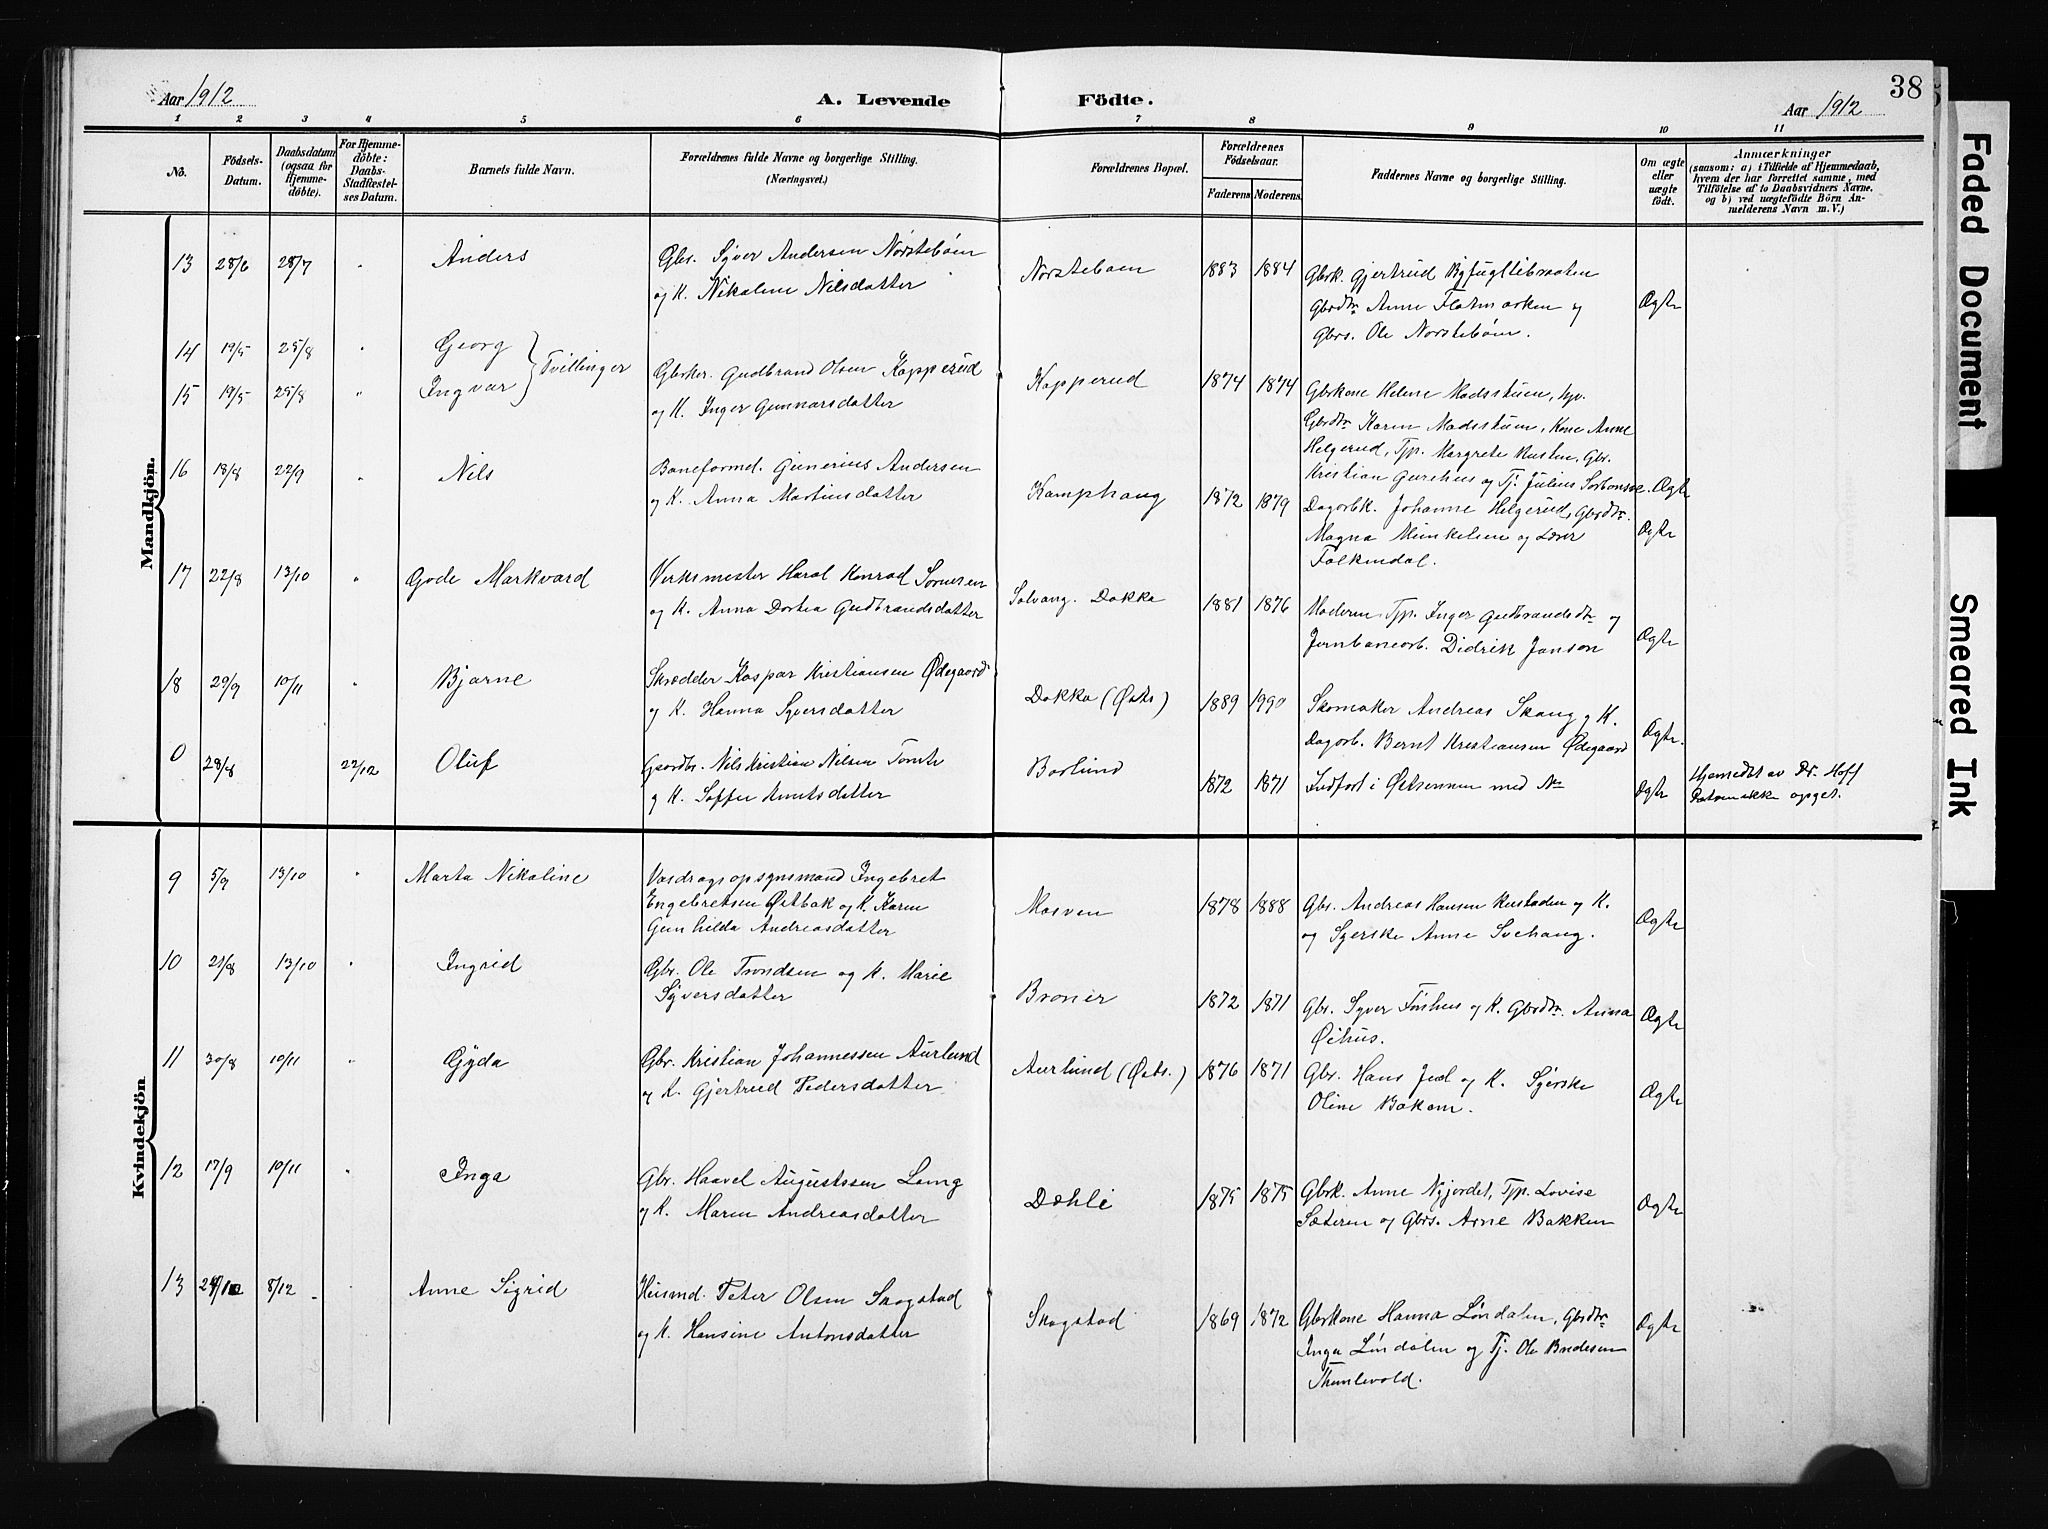 Aar 1912
A. Levende Födte.
38
Aar 1912
1 2 3 4 5 6 7 8 9 10 11
No.
Födsels-Datum.
Daabsdatum (ogsaa for Hjemmedöbte).
For Hjemmedöbte: Daabs-Stadfæstelses Datum.
Barnets fulde Navn.
Forældrenes fulde Navne og borgerlige Stilling.
(Næringsvei.)
Forældrenes Bopæl.
Forældrenes Födselsaar.
Faderens Moderens
Faddernes Navne og borgerlige Stilling.
Om ægte eller uægte födt.
Anmærkninger
(saasom: a) i Tilfælde af Hjemmedaab,
hvem der har forrettet samme, med
Tilföielse af to Daabsvidners Navne,
og b) ved uægtefödte Börn An-
melderens Navn m. V.)
Mandkjön.
13 28/6 28/7 " Anders
Gbr. Syver Andersen Nørstebøen
og K. Nikoline Nilsdatter
Norsteboen 1883 1884
Gbrk. Gjertrud
Gbrdtr. Anne Flatmarken og
Gbrs. Ole Norstebøen.
Ægte
14 19/5 25/8 " Georg
15 19/5 25/8 " Ingvar } Tvillinger
Gbrker. Gudbrand Olsen Kopperud
og K. Inger Gunnarsdatter
Kopperud 1874 1874
Gbrkone Helene Madsstuen,
Gbrdtr. Karen Madsstuen, Kone Anne
Helgerud, Tjp. Margrete Rusten, Gbr.
Kristian og Tj. Julius
Ægte
16 18/8 22/9 " Nils
Baneformd. Gunerius Andersen
og K. Anna Martinsdatter
Kamphaug 1872 1879
Dagarbk. Johanne Helgerud, Gbrdtr.
Magna og Lærer
Falkendal.
Ægte
17 22/8 13/10 " Gode Markvard
Verksmester Haral Konrad Sørnesen
og K. Anna Dortea Gudbrandsdatter
Solvang. Dokka 1881 1876
Moderen, Tjp. Inger Gudbrandsdtr og
Jernbanearb. Didrik Janson
Ægte
18 29/9 10/11 " Bjarne
Skrædder Kaspar Kristiansen Ødegaard
og K. Hanna Syversdatter
Dokka (Østs) 1889 1990
Skomaker Andreas Skaug og K.
Dagarb. Bernt Kristiansen Ødegaard
Ægte.
0 28/8 22/12 Oluf
Gaardbr. Nils Kristian Nilsen Tomte
og K. Soffie Knutsdatter
Borlund 1872 1871
Indført i Østsennen med No
Ægte
Hjemedøt av Dr. Hoff
opget.
Kvindekjön
9 5/9 13/10 " Marta Nikoline
Vasdragsopsynsmand Ingebret
Engebretsen Østbak og K. Karen
Gunhilda Andreasdatter
Mosven 1878 1888
Gbr. Andreas Hansen Rustaden og K.
og Syerske Anne Svehaug.
Ægte
10 21/8 13/10 " Ingrid
Gbr. Ole Trondsen og K. Marie
Syversdatter
Broner 1872 1871
Gbr. Syver Finhus og K. Gbrdtr. Anna
Øihus.
Ægte
11 30/8 10/11 " Gyda
Gbr. Kristian Johannessen Aurlund
og K. Gjertrud Pedersdatter
Aurlund (Østs.) 1876 1871
Gbr. Hans Juel og K. Syerske
Oline Bakom.
Ægte
12 17/9 10/11 " Inga
Gbr. Haavel Augustssen Lang
og K. Maren Andreasdatter
Dæhli 1875 1875
Gbrk. Anne Nyjordet, Tjp. Lovise
Sæteren og Gbrs. Arne Bakken
Ægte
13 24/10 8/12 Anne Sigrid
Husmd. Peter Olsen Skogstad
og K. Hansine Antonsdatter
Skogstad 1869 1872
Gbrkone Hanna Løndalen, Gbrdtr
Inga Løndalen og Tj. Ole Bredesen
Thonlevold.
Ægte
Faded Document
Smeared Ink